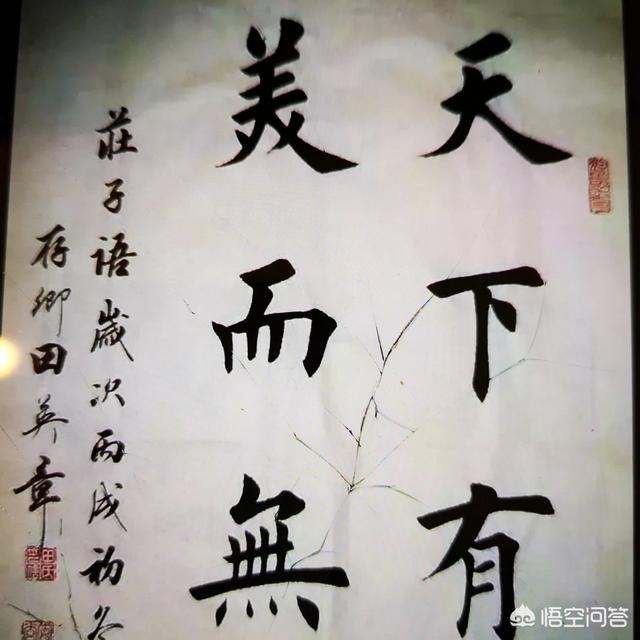 天下有
美而無
莊子語歲次丙戌初冬
存卿田英章
悟空问答